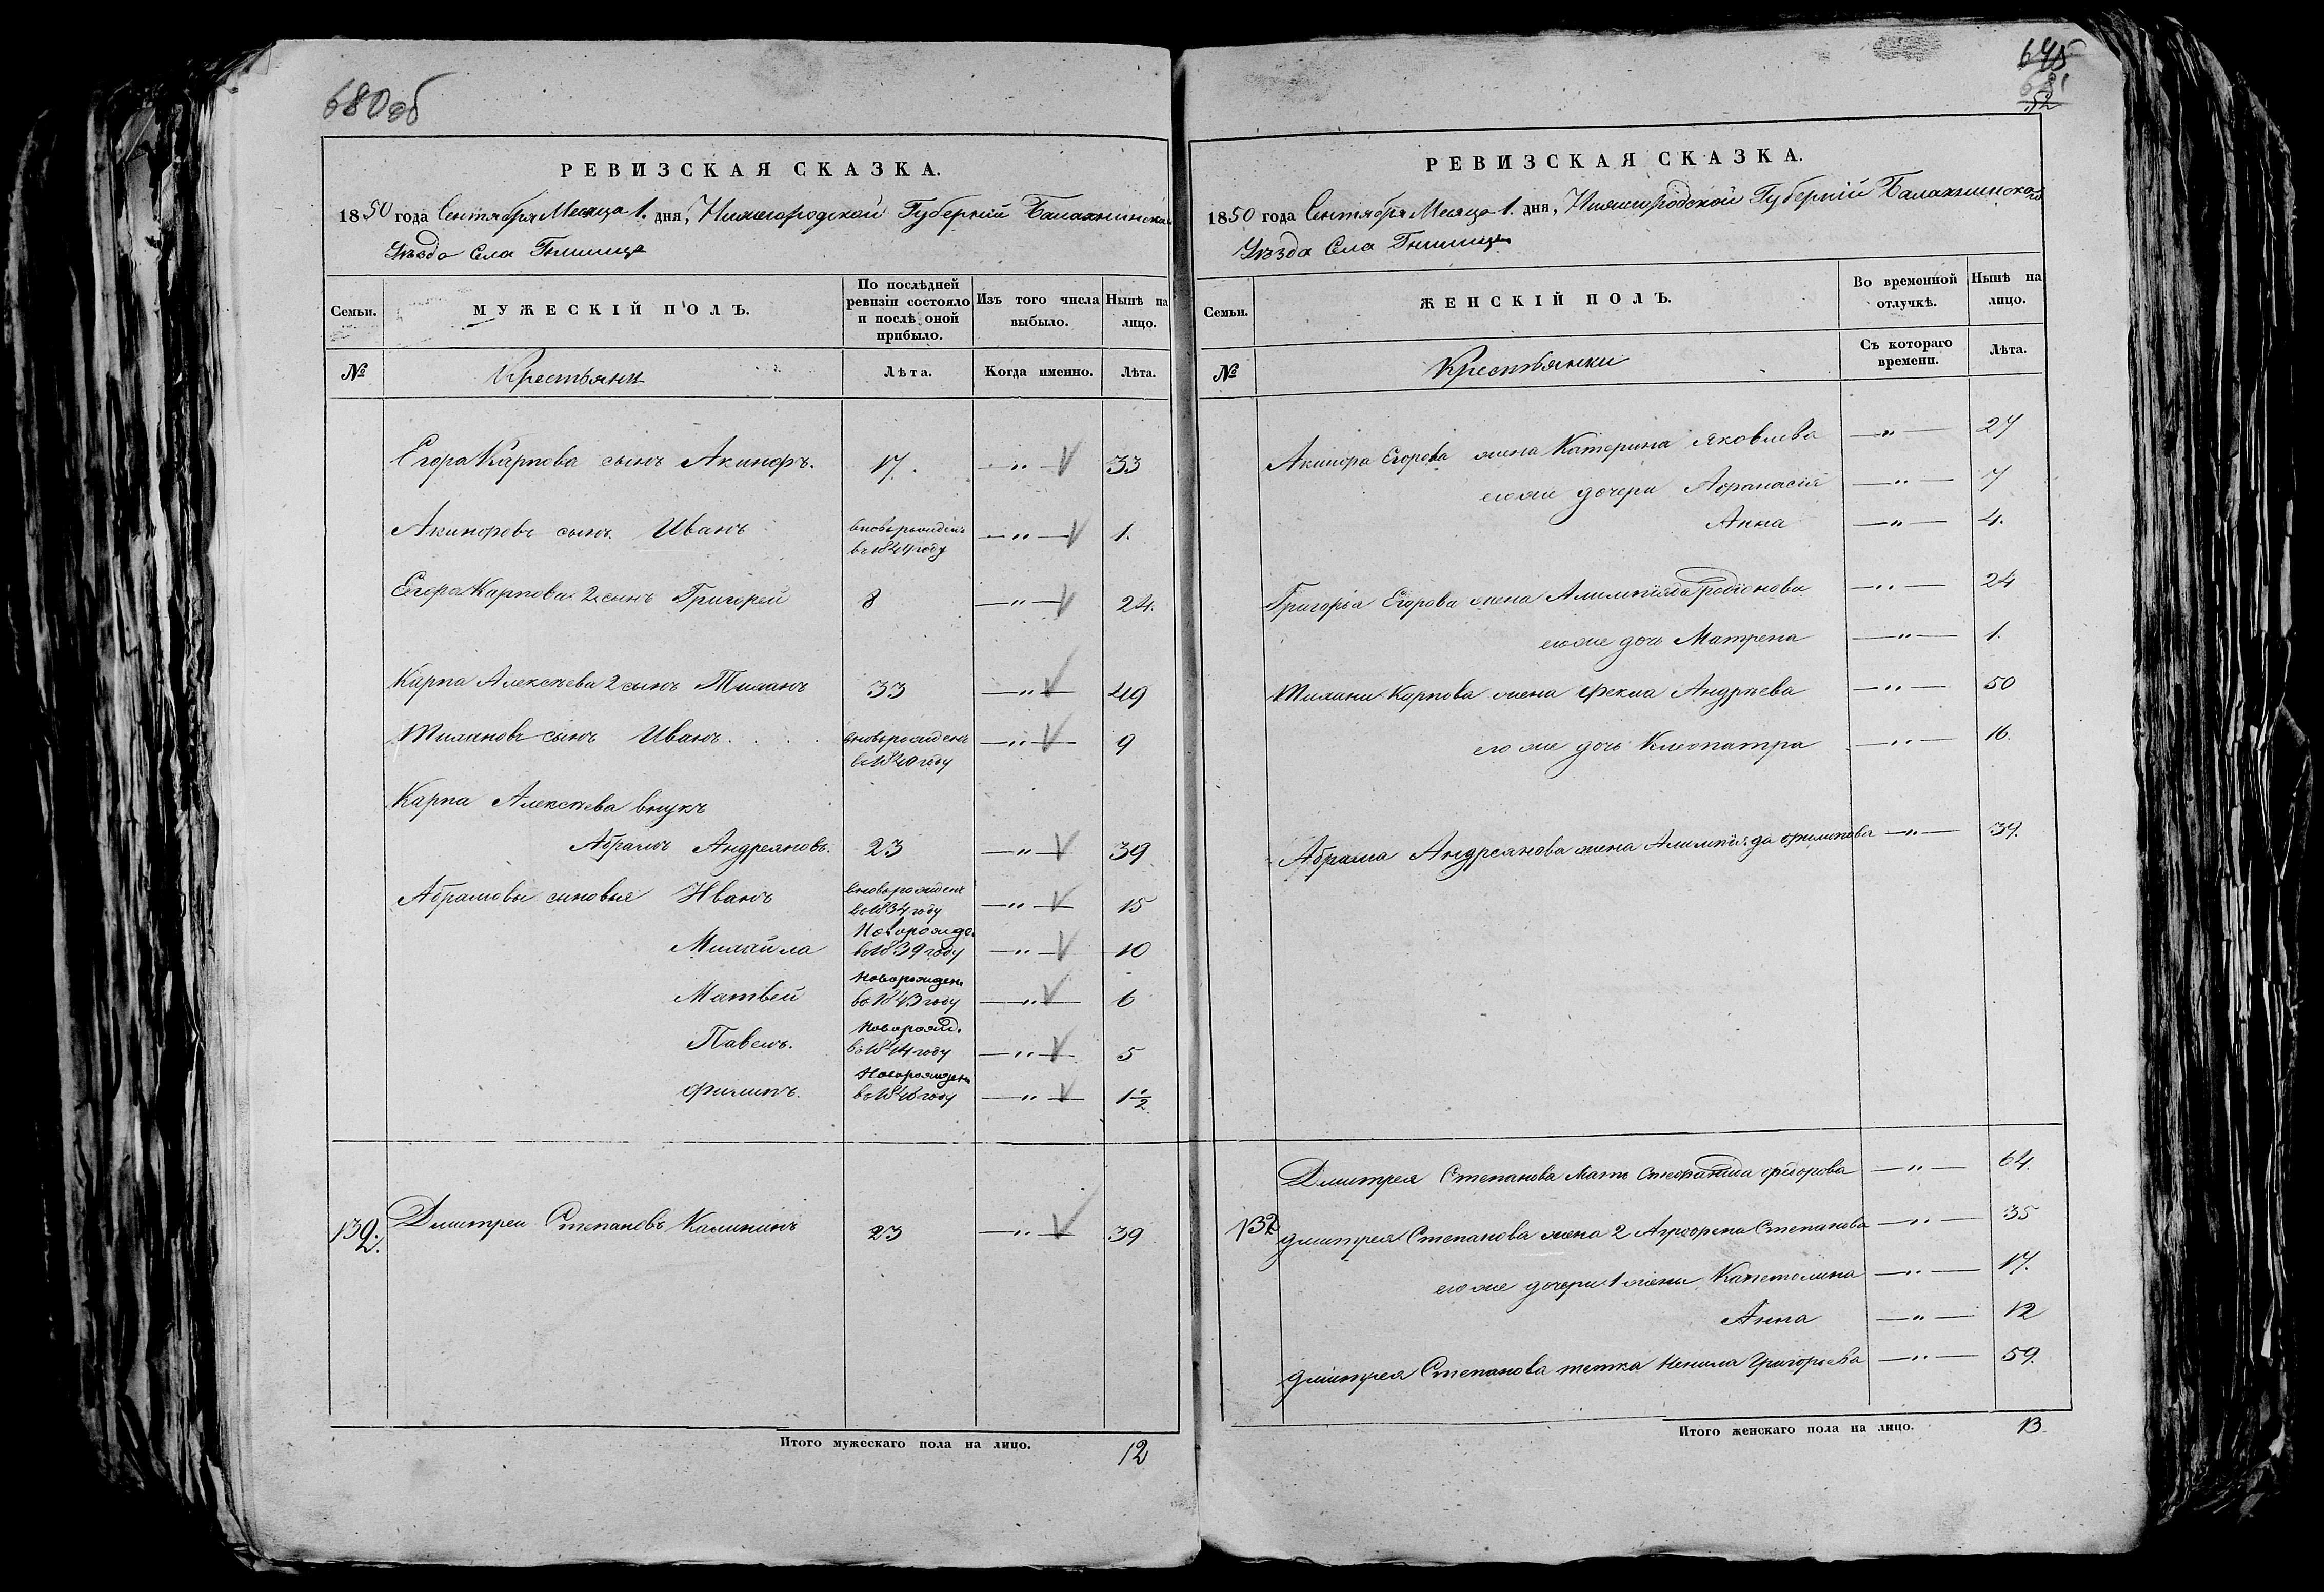 680об
РЕВИЗСКАЯ СКАЗКА.
1850 года Сентября Месяца 1. дня, Нижегородской Губерніи Балахнинска
Уѣзда Села
Семьи.
МУЖЕСКІЙ ПОЛЪ.
По послѣдней ревизіи состояло и послѣ оной прибыло.
Изъ того числа выбыло.
Нынѣ на лицо.
№
Крестьяни
Лѣта.
Когда именно.
Лѣта.
Егора Карпова сынъ Акинфъ. 17. —„— 33
Акинфовъ сынъ Иванъ вновьрожденъ въ 1844 году —„— 1.
Егора Карпова 2 сынъ Григорей 8 —„— 24.
Карпа Алексѣева 2 сынъ 33 —„— 49
сынъ Иванъ. вновьрожденъ въ 1840 году —„— 9
Карпа Алексѣева внукъ
Абрамъ Андреяновъ. 23 —„— 39
Абрамовы сыновья Иванъ вновьрожденъ въ 1834 году —„— 15
Михайла Новорожде. въ 1839 году —„— 10
Матвей Новорожден. въ 1843 году —„— 6
Павелъ. Новорожд. въ 1844 году —„— 5
Филипъ. Новорожден въ году —„— 1 1/2
139. Дмитреи Степановъ Калининъ 23 —„— 39
Итого мужескаго пола на лицо. 12
645
681
52
РЕВИЗСКАЯ СКАЗКА.
1850 года Сентября Месяца 1. дня, Нижегородской Губерніи Балахнинскаго
Уѣзда Села
Семьи.
ЖЕНСКІЙ ПОЛЪ.
Во временной отлучкѣ.
Нынѣ на лицо.
№
Крестьянки
Съ котораго времени.
Лѣта.
Акинфа Егорова жена Катерина Яковлева —„— 27
его же дочери Афанасія —„— 7
Анна —„— 4.
Григорья Егорова жена Алимпіяда Родіонова —„— 24
его же дочь Матрена —„— 1.
Карпова жена Фекла Андрѣева —„— 50
его же дочь Клеопатра —„— 16.
Абрама Андреянова жена Алимпіяда Филипова —„— 39.
Дмитрея Степанова Мать Степанида Фёдорова —„— 64.
132 Дмитрея Степанова жена 2 Агрофена Степанова —„— 35
его же дочери 1 жены Капетолина —„— 17.
Анна —„— 12
Дмитрея Степанова тетка Ненила Григорьева —„— 59.
Итого женскаго пола на лицо. 13